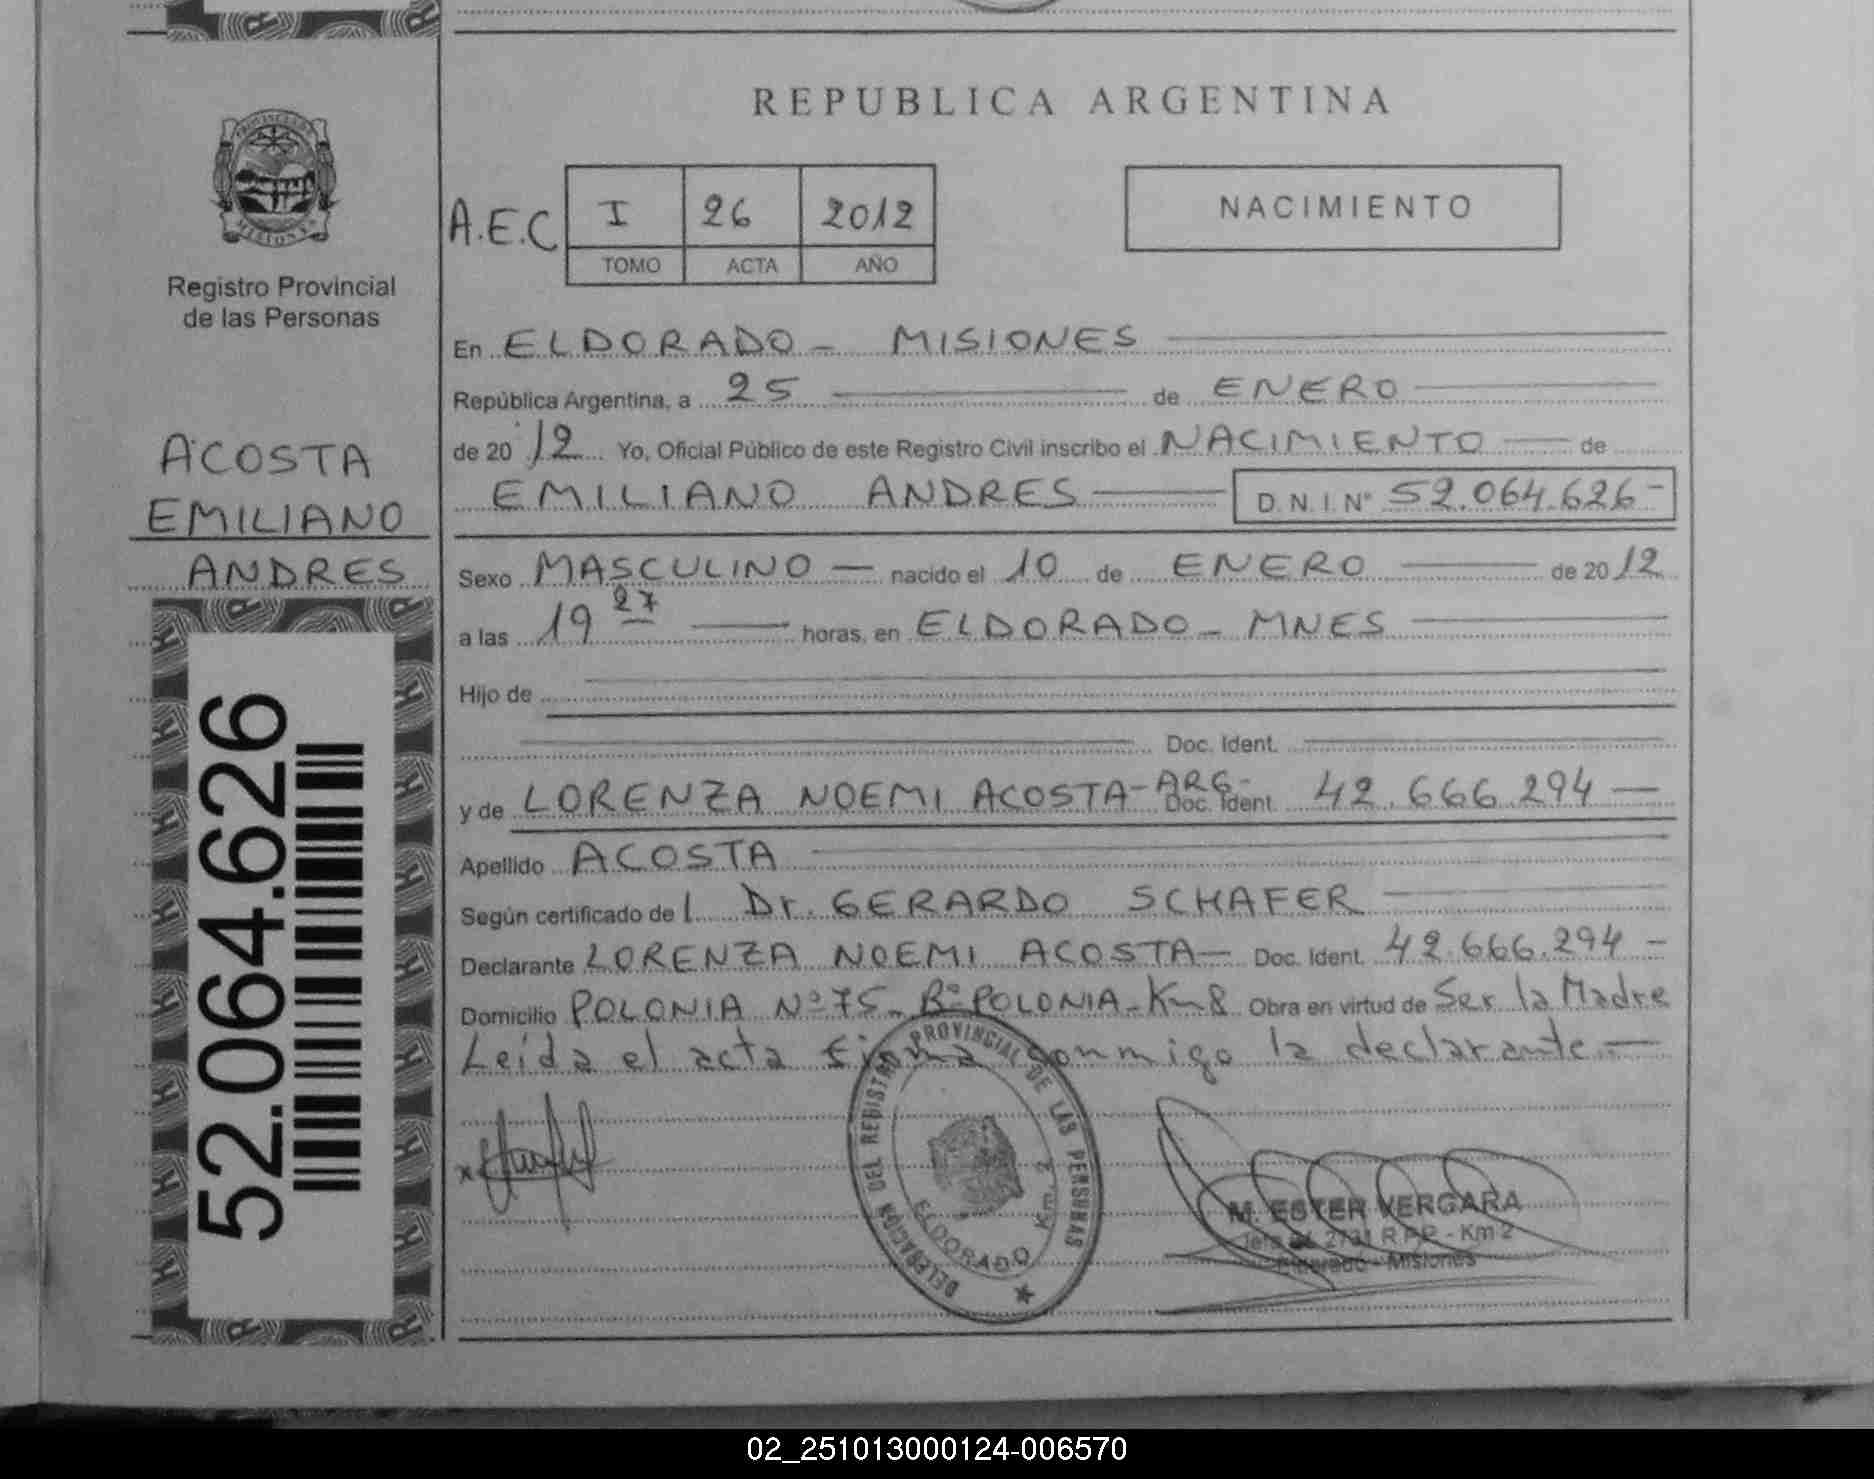 REPUBLICA ARGENTINA
PROVINCIA DE
MISIONES
Registro Provincial
de las Personas
A.E.C I 26 2012
TOMO ACTA AÑO
NACIMIENTO
En ELDORADO - MISIONES
República Argentina, a 25 de ENERO
de 2012 Yo, Oficial Público de este Registro Civil inscribo el NACIMIENTO de
EMILIANO ANDRES D.N.I. N° 52.064.626-
ACOSTA
EMILIANO
ANDRES
Sexo MASCULINO — nacido el 10 de ENERO de 2012
a las 19 27 horas, en ELDORADO - MNES
Hijo de
Doc. Ident.
y de LORENZA NOEMI ACOSTA - ARG - Doc. Ident. 42.666.294 —
Apellido ACOSTA
Según certificado del Dr. GERARDO SCHAFER
Declarante LORENZA NOEMI ACOSTA — Doc. Ident. 42.666.294 -
Domicilio POLONIA N° 75 - B° POLONIA - Km 8 Obra en virtud de Ser la Madre
Leida el acta firma conmigo la declarante. —
52.064.626
DELEGACION DEL REGISTRO PROVINCIAL DE LAS PERSONAS
ELDORADO Km. 2
M. ESTER VERGARA
Jefe 2721 R.P.P - Km 2
Eldorado - Misiones
02_251013000124-006570